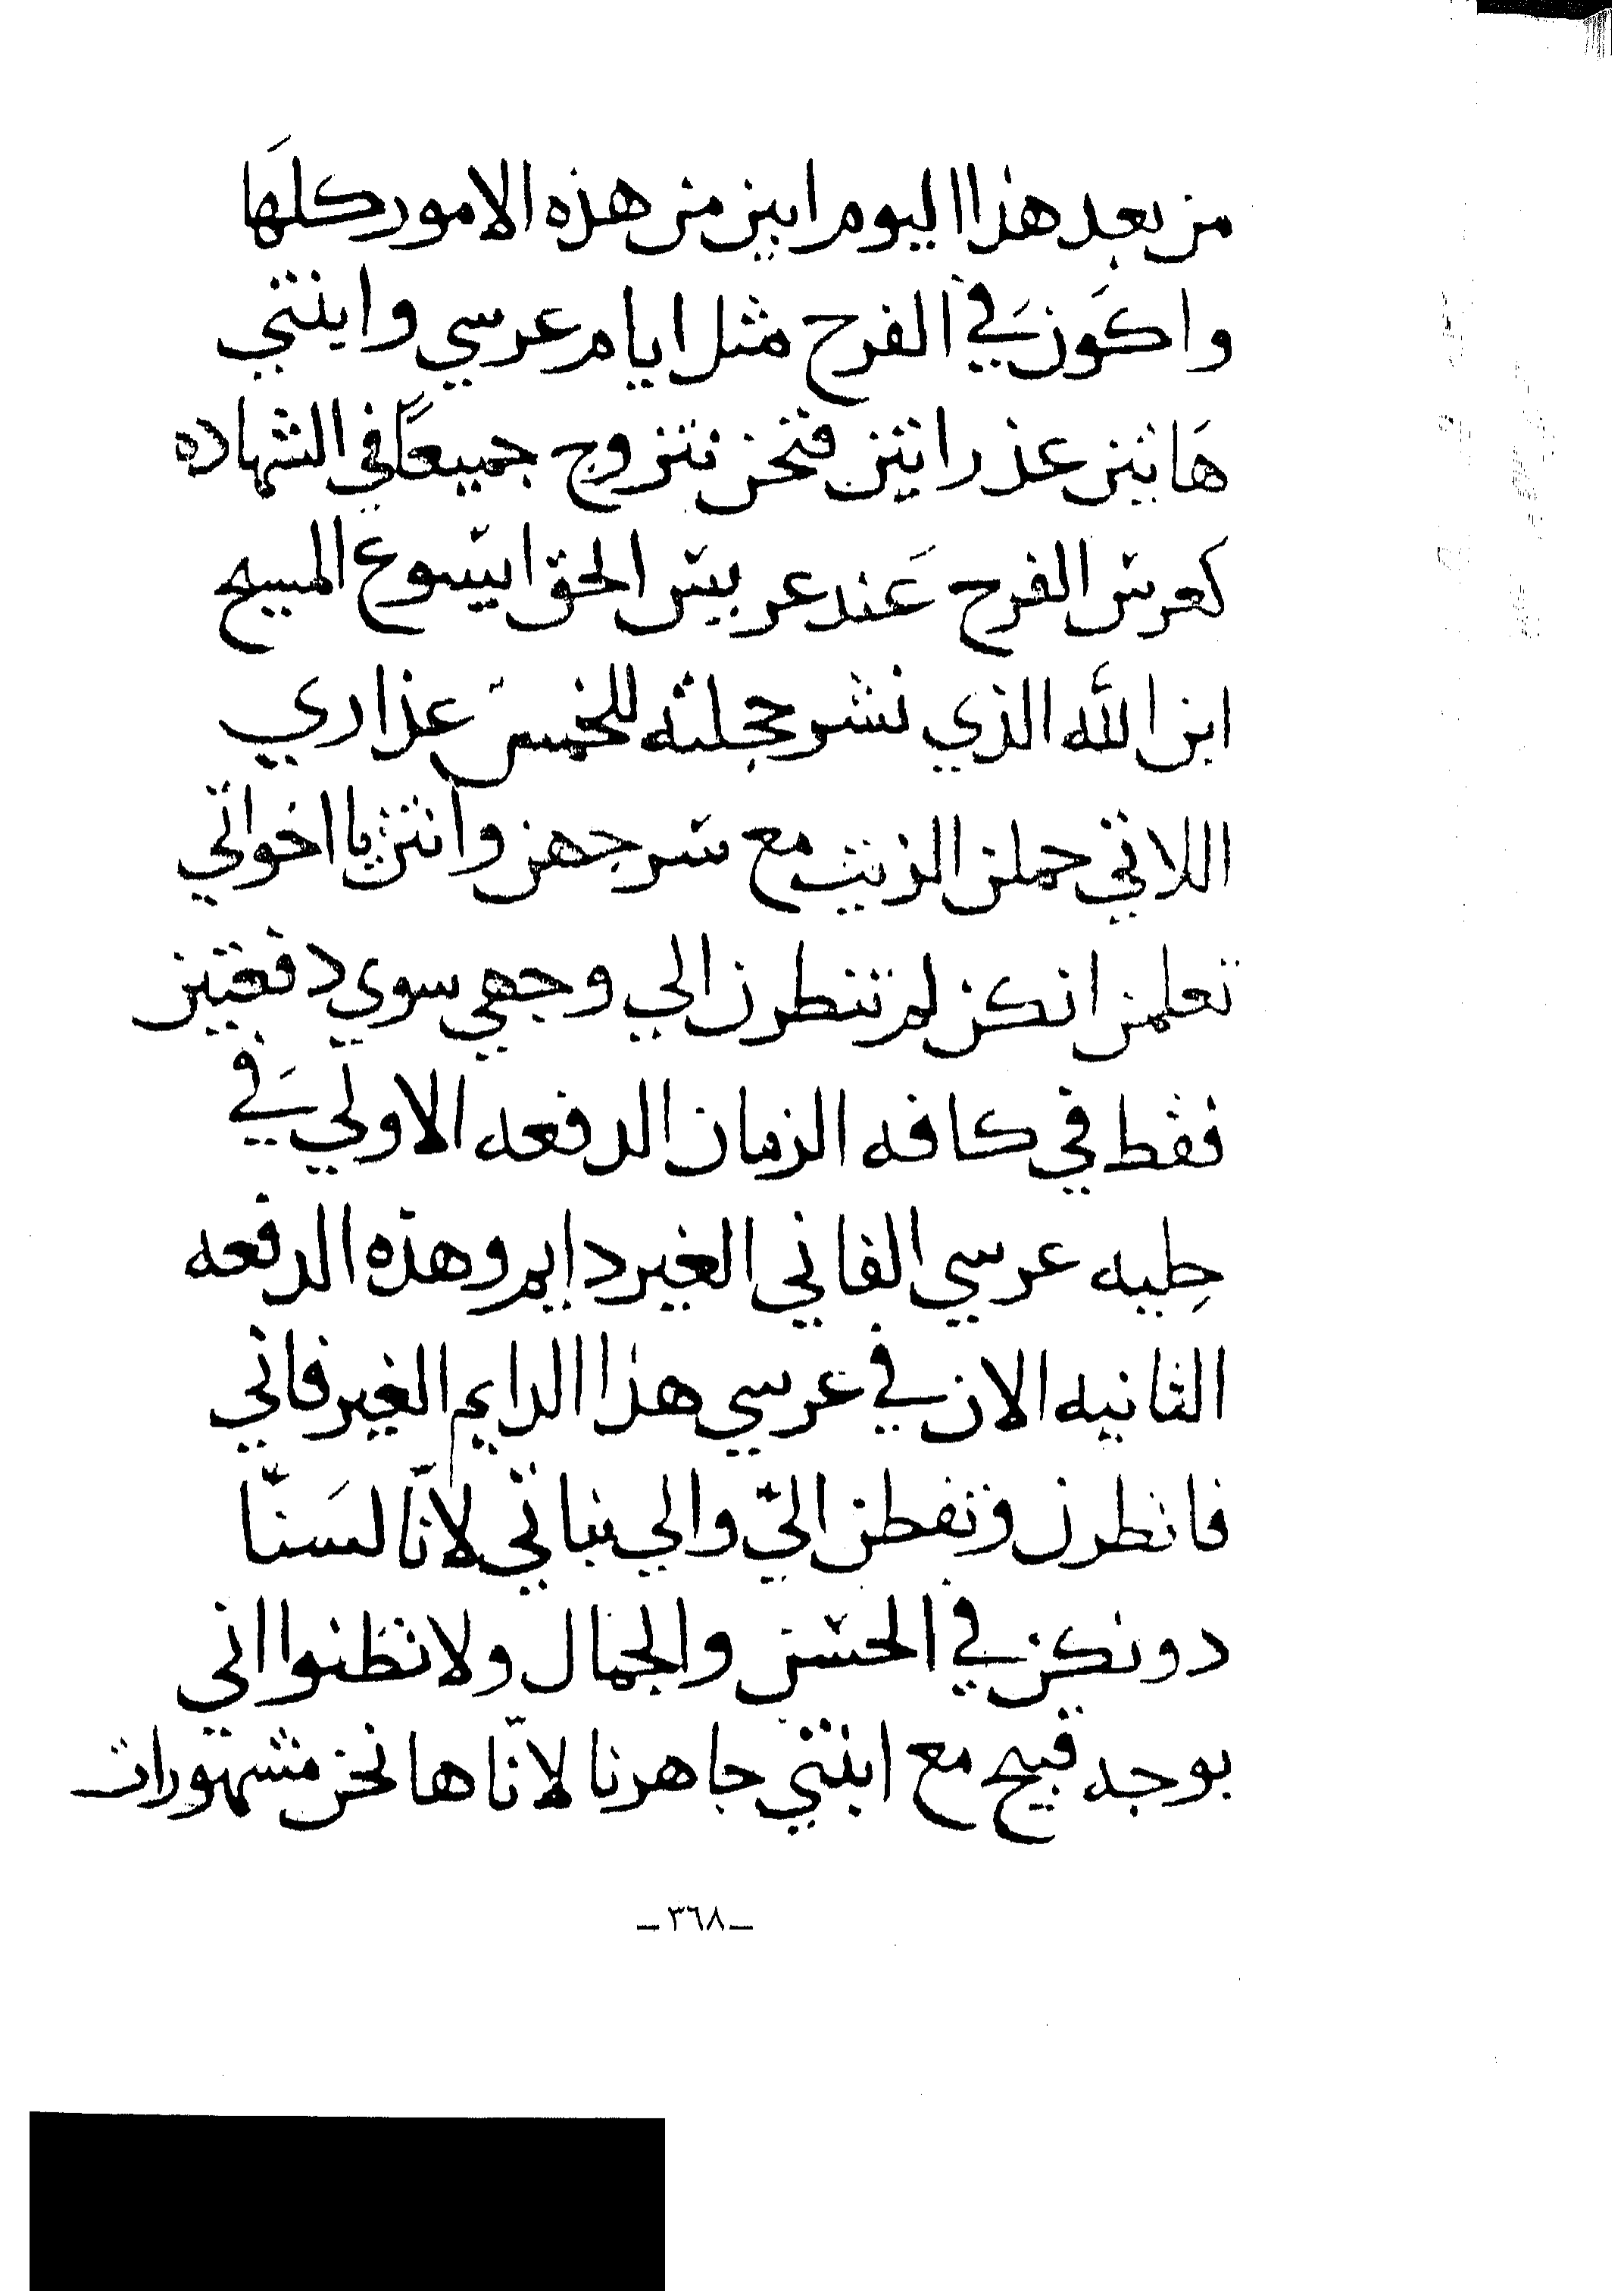 من بعد هذا اليوم ابين من هذه الامور كلها
واكون في الفرح مثل ايام عرسي وابنتي
هاتين عذراتين فنحن نتزوج جميعاً في الشهاده
كعرس الفرح عند عريس الحق ايسوع المسيح
ابن الله الذي نشر حجلته للخمس عذاري
اللاتي حملن الزيت مع سرجهن وانتن يا اخواتي
تعلمن انكن لم تنطرن الي وجهي سوي دفعتين
فقط في كافه الزمان الدفعه الاولي في
حليه عرسي الفاني الغير دايم وهذه الدفعه
الثانيه الان في عرسي هذا الدايم الغير فاني
فانطرن وتفطن اليّ والي بناتي لانّا لسنّا
دونكن في الحسن والجمال ولا تظنوا اني
بوجه قبيح مع ابنتي جاهرنا لانّا ها نحن مشهورات
ـ٣٦٨ـ